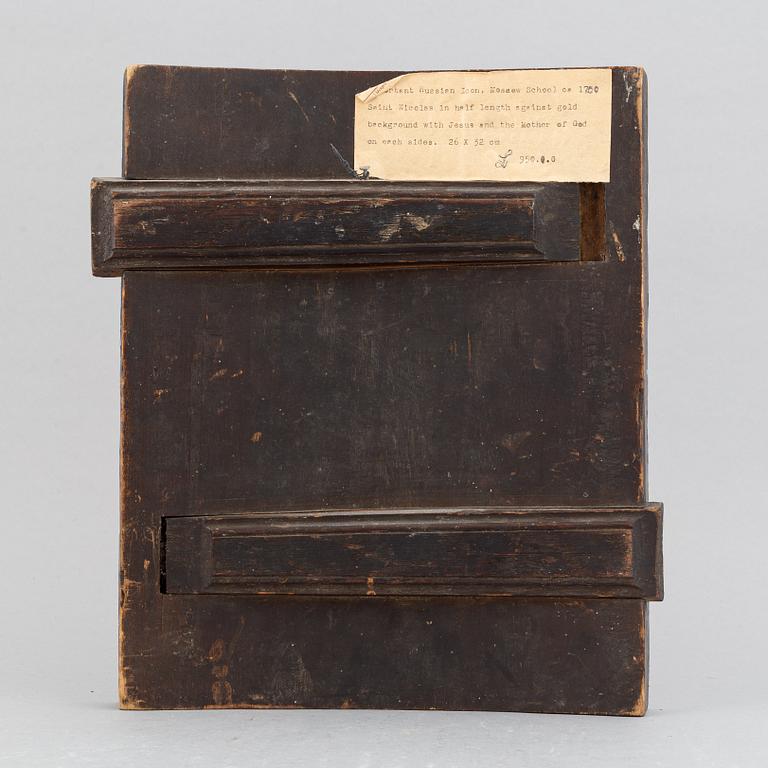 Russian Icon, Moscow School ca 1750
Saint Nicolas in half length against gold
background with Jesus and the Mother of God
on each sides. 26 X 32 cm
950.0.0